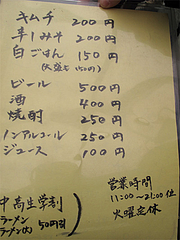 キムチ 200円
辛みそ 200円
白ごはん 150円
(大盛も150円)
ビール 500円
酒 400円
焼酎 250円
ノンアルコール 250円
ジュース 100円
中高生学割
ラーメン
ラーメン(大) 50円引
営業時間
11:00~21:00位
火曜定休